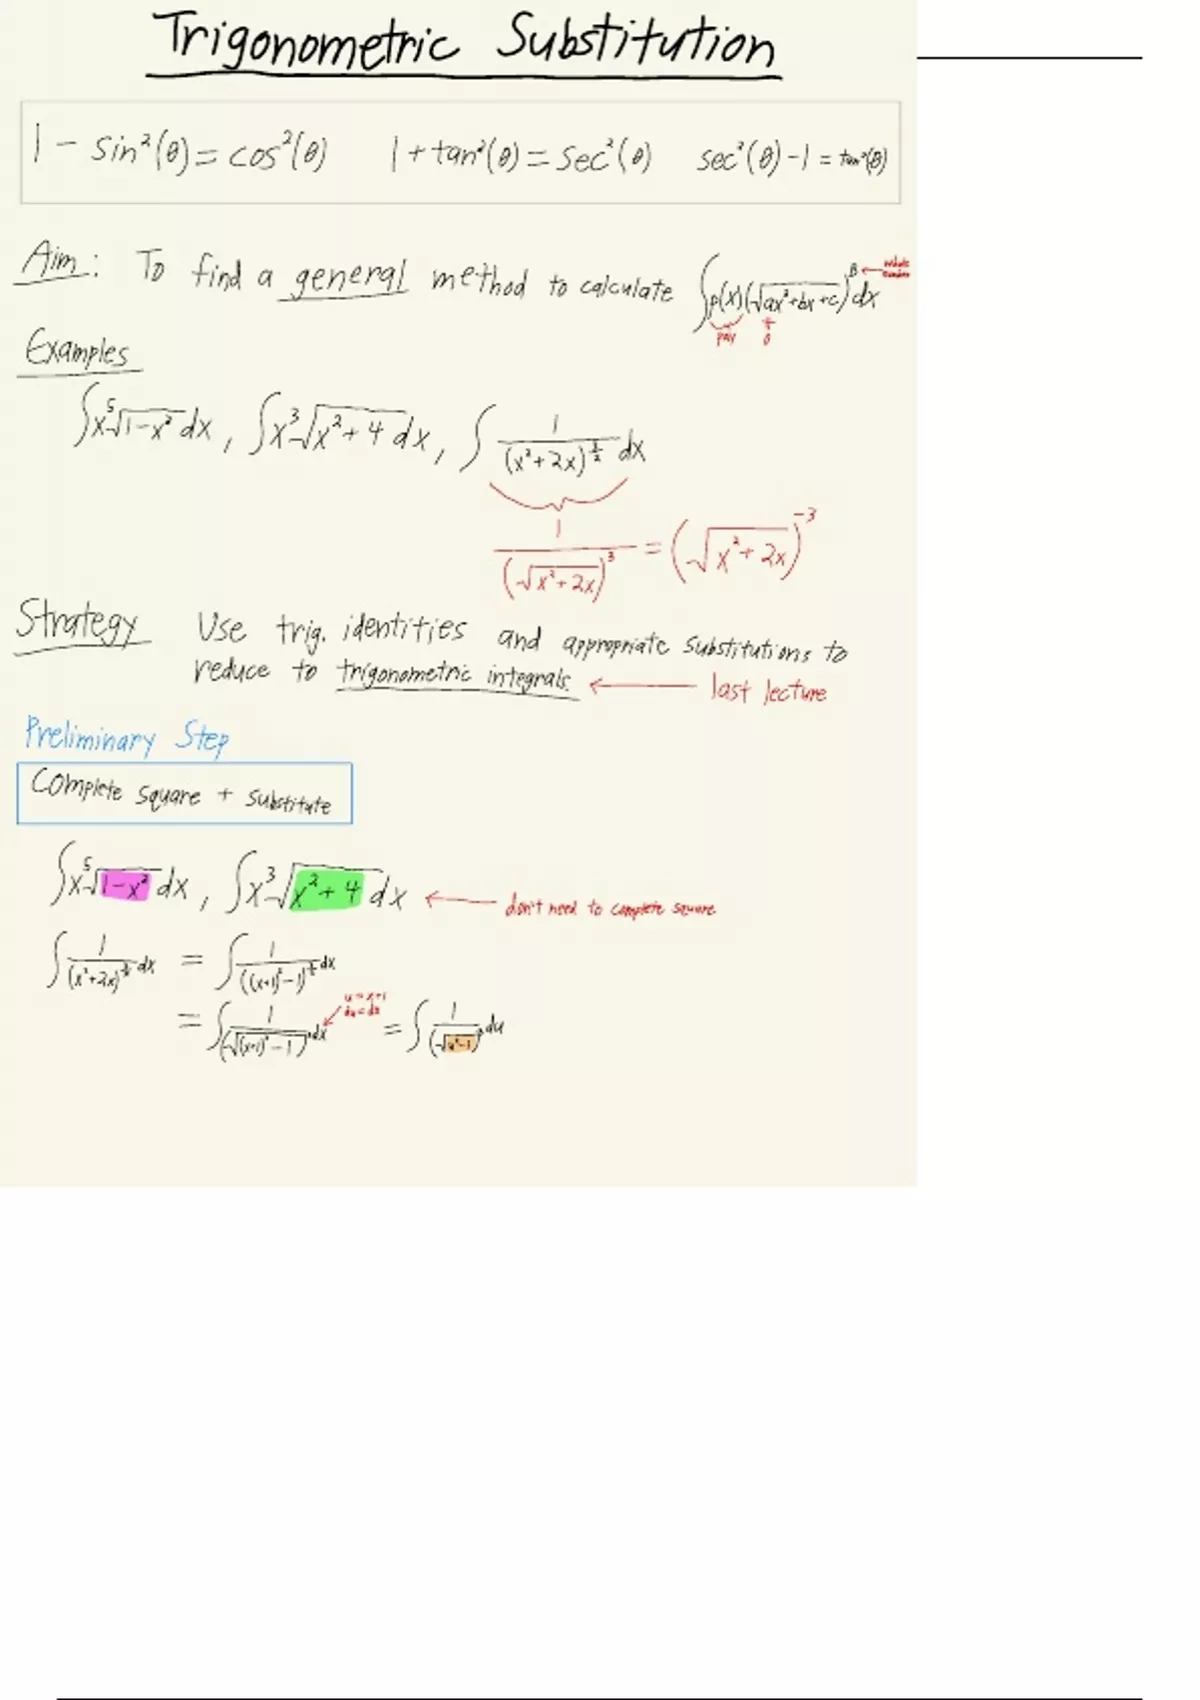 Trigonometric Substitution
1 - sin²(θ) = cos²(θ) 1 + tan²(θ) = sec²(θ) sec²(θ) - 1 = tan²(θ)
Aim: To find a general method to calculate ∫p(x)(√(ax²+bx+c))^β dx ← whole number
poly ≠ 0
Examples
∫x⁵√(1-x²) dx, ∫x³√(x²+4) dx, ∫ 1/(x²+2x)^(3/2) dx
1/(√(x²+2x))³ = (√(x²+2x))⁻³
Strategy Use trig. identities and appropriate substitutions to
reduce to trigonometric integrals. ← last lecture
Preliminary Step
Complete square + substitute
∫x⁵√(1-x²) dx, ∫x³√(x²+4) dx ← don't need to complete square
∫ 1/(x²+2x)^(3/2) dx = ∫ 1/((x+1)²-1)^(3/2) dx
u = x+1
du = dx
= ∫ 1/(√((x+1)²-1))³ dx = ∫ 1/(√(u²-1))³ du